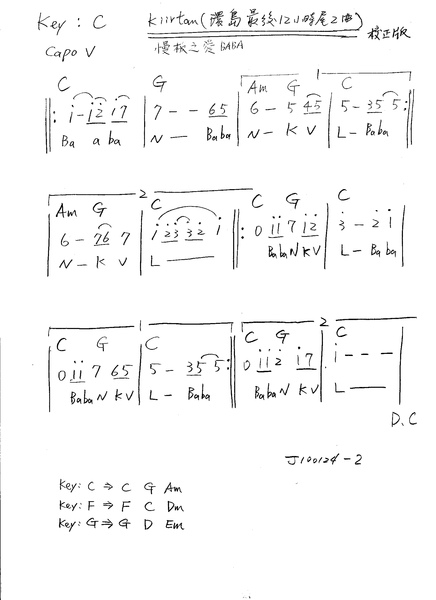 Key : C Kiirtan(環島最後12小時尾2曲) 校正版
Capo V 慢板之愛 BABA
C G Am G 1 C
||: i - i2 i7 | 7 - - 65 | 6 - 5 45 | 5 - 35 5 :||
Ba a ba N — Baba N - K V L - Baba
Am G 2 C C G C
6 - 76 7 | i 23 32 i ||: 0 ii 7 i2 | 3 - 2 i |
N - K V L —— Baba N KV L - Baba
C G 1 C C G 2 C
0 ii 7 65 | 5 - 35 5 :|| 0 ii 2 i7 | i - - - |
Baba N KV L - Baba Baba N KV L ——
D.C
J100124-2
Key: C ⇒ C G Am
Key: F ⇒ F C Dm
Key: G ⇒ G D Em